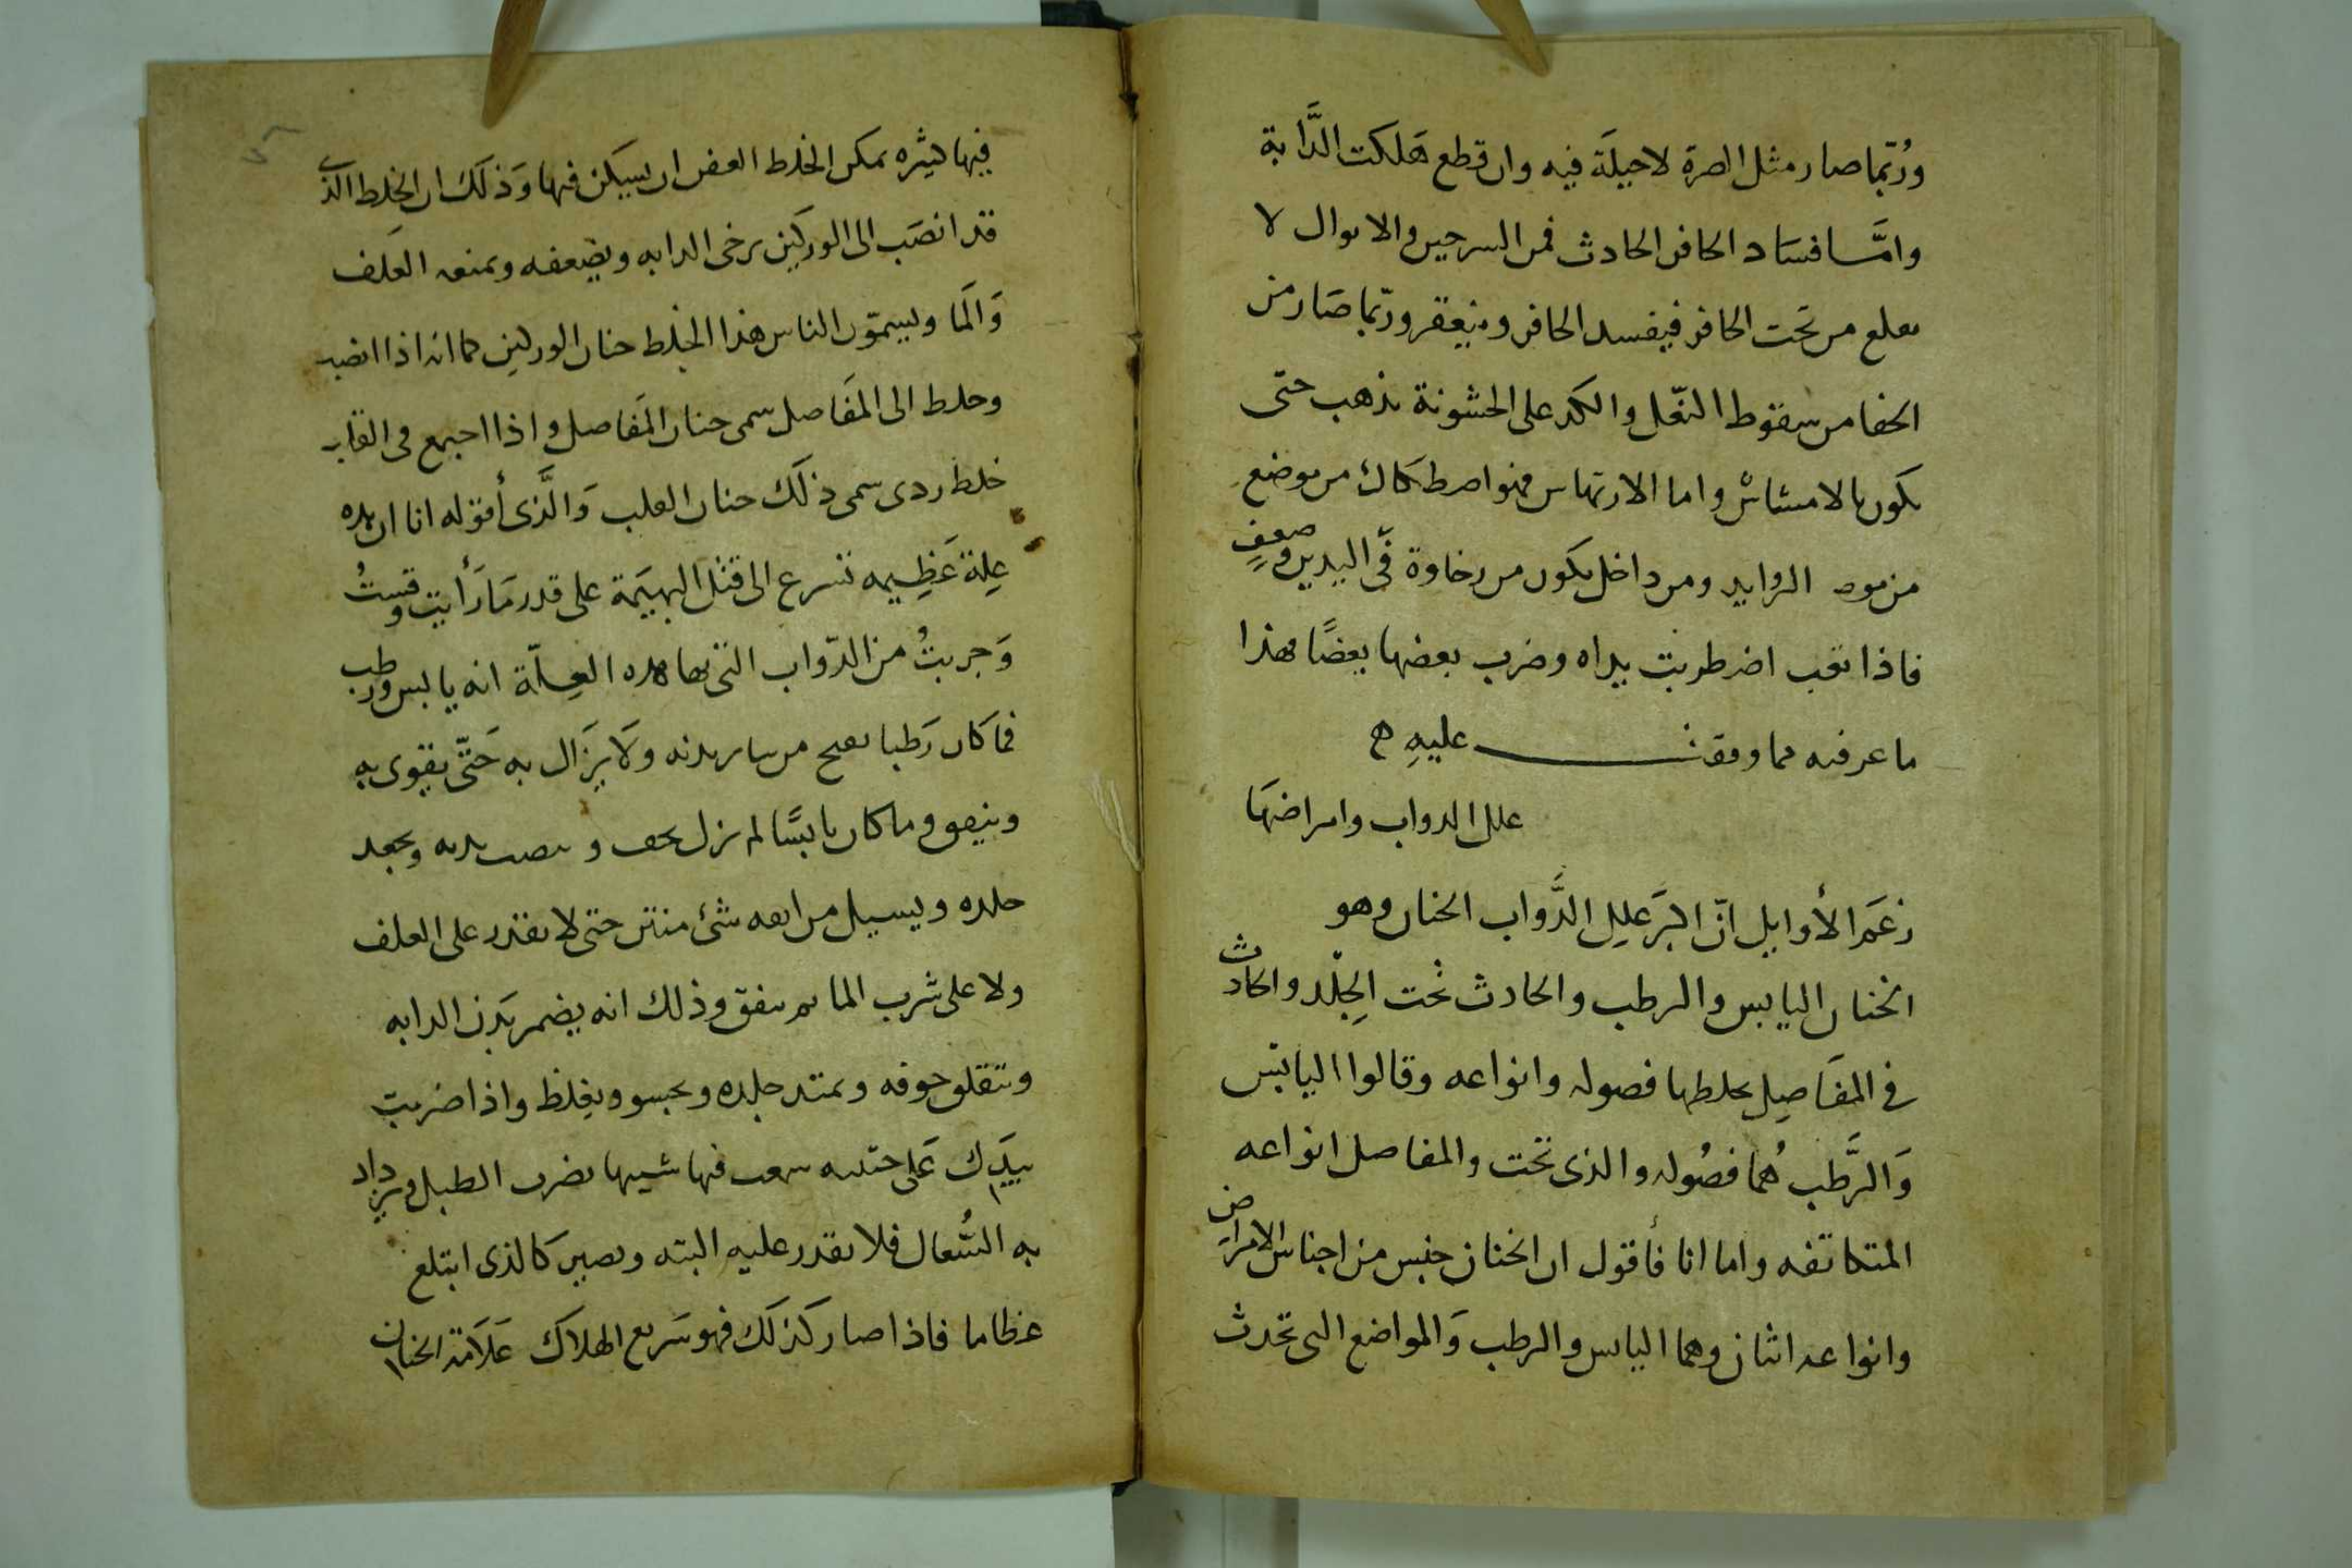 ورُبّما صار مثل الصرة لا حيلَة فيه وان قطع هَلكت الدَّابة
وامَّا فسَاد الحافر الحادث فمن السرجين والابوال لا
من تحت الحافر فيفسد الحافر وينعقر وربّما صَار من
الحفا من سقوط النعَل والكد على الخشونة يذهب حتى
يكون بالامشاش واما الارتهاس فهو اصطكاك من موضع
من الزوايد ومن داخل يكون من رخاوة في اليدين وضعفٍ
فاذا تعب اضطربت يداه وضرب بعضها بعضًا فهذا
ما عرفته مما وقفت عليهِ ه
علل الدواب وامراضهَا
زعَم الأوايل انّ اكبَر عللِ الدَّواب الخنان وهو
الخنان اليابس والرطب والحادث تحت الجِلْد والحادث
في المفَاصِل يخلطها فصوله وانواعه وقالوا اليابَس
وَالرَّطب هُما فصُوله والذى تحت والمفاصل انواعه
المتكاتفه واما انا فأقول ان الخنان جنس من اجناس الامراض
وانواعه اثنان وهما اليابس والرطب وَالمواضع التى تحدث
فيها كثيره يمكن الخلط العفن ان يسكن فيها وَذلكَ ان الخلط الذى
قد انصَب الى الوركين يرخى الدابه ويضعفه ويمنعه العَلف
وَالمَا ويسمّون الناس هذا الخلط خنان الوركين كما انه اذا انصب
وخلط الى المفَاصل سمى خنان المفَاصل واذا اجتمع فى القلب
خلط ردى سمى ذلكَ خنان القلب وَالَّذى أقوله انا ان هذه
عِلة عَظِيمه تسرع الى قتل البهيَمة على قدر مَا رَأيت وقستُ
وَجربتُ من الدّواب التى بها هذه العِلّة انه يابس ورطب
فما كان رَطبا من ساير بدنه ولَا يزَال به حَتّى يقوى به
وينفق وما كان يابسًا لم يزل بدنه ويجعد
جلده ويسيل من انفه شئ منتن حتى لا يقدر على العلف
ولا على شرب الما ثم ينفق وذلك انه يضمر بَدن الدابه
وتتقلق جوفه ويمتد جلده ويجسو ويغلظ واذا ضربت
بيَدِك عَلى جنبيه سمعت فيها شبيها بضرب الطبل ويزداد
به السُّعال فلا يقدر عليه البته ويصير كالذى ابتلع
عظاما فاذا صار كذلكَ فهو سَريع الهلاك عَلَامَة الخنان